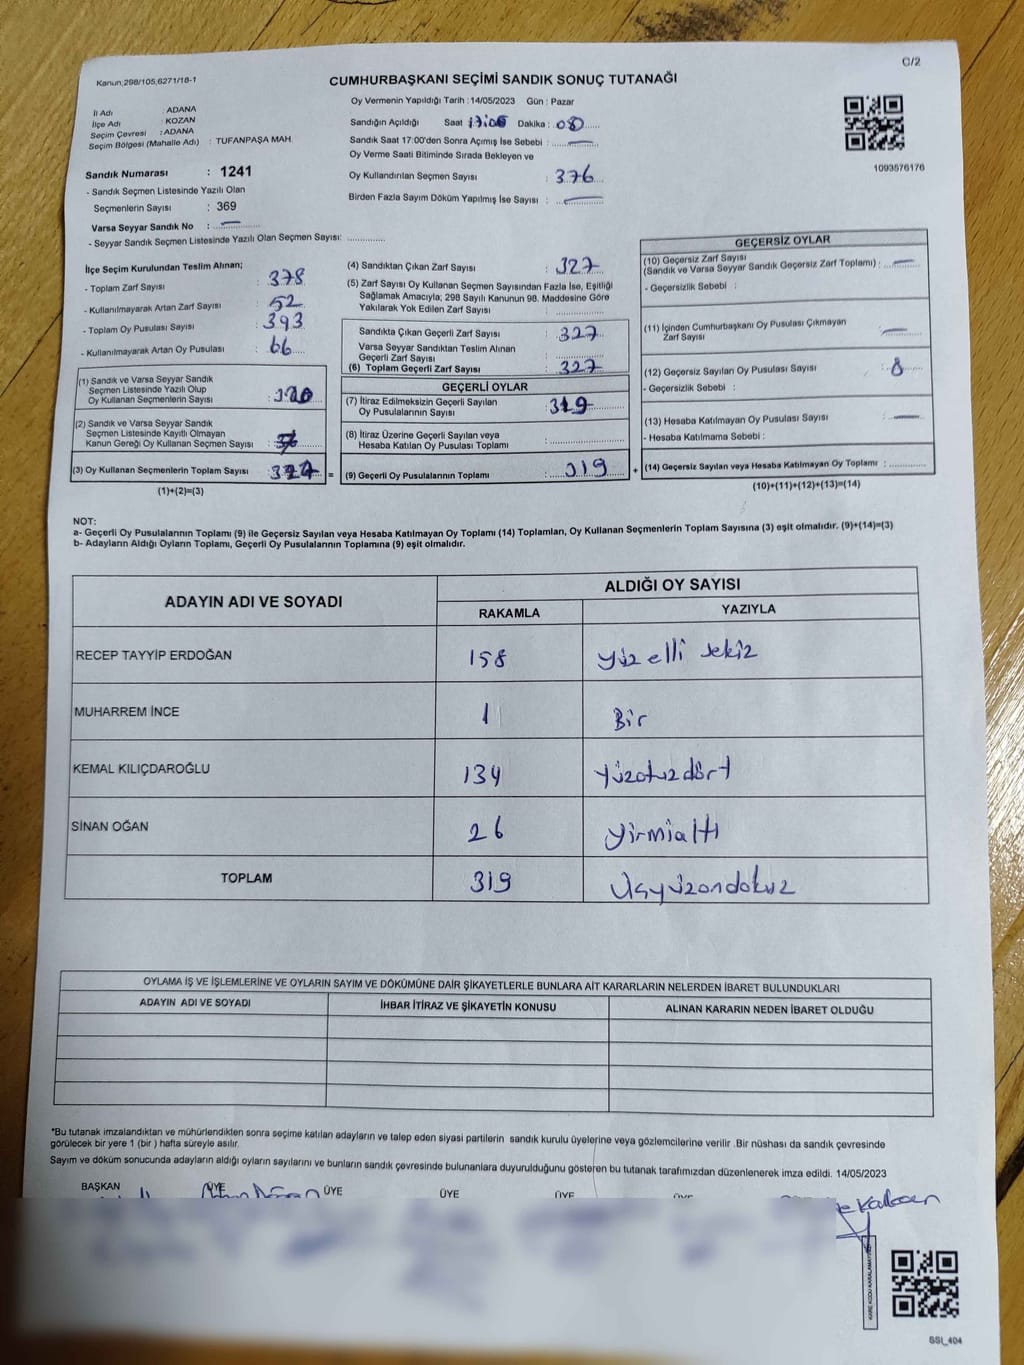 C/2
Kanun:298/105,6271/18-1
CUMHURBAŞKANI SEÇİMİ SANDIK SONUÇ TUTANAĞI
İl Adı : ADANA
İlçe Adı : KOZAN
Seçim Çevresi : ADANA
Seçim Bölgesi (Mahalle Adı) : TUFANPAŞA MAH.
Oy Vermenin Yapıldığı Tarih : 14/05/2023 Gün : Pazar
Sandığın Açıldığı Saat Dakika :
Sandık Saat 17:00'den Sonra Açımış İse Sebebi :
Oy Verme Saati Bitiminde Sırada Bekleyen ve
Oy Kullandırılan Seçmen Sayısı : 376
Birden Fazla Sayım Döküm Yapılmış İse Sayısı :
1093576176
Sandık Numarası : 1241
- Sandık Seçmen Listesinde Yazılı Olan
Seçmenlerin Sayısı : 369
Varsa Seyyar Sandık No :
- Seyyar Sandık Seçmen Listesinde Yazılı Olan Seçmen Sayısı:
İlçe Seçim Kurulundan Teslim Alınan;
- Toplam Zarf Sayısı : 378
- Kullanılmayarak Artan Zarf Sayısı : 52
- Toplam Oy Pusulası Sayısı : 393
- Kullanılmayarak Artan Oy Pusulası : 66
(1) Sandık ve Varsa Seyyar Sandık
Seçmen Listesinde Yazılı Olup
Oy Kullanan Seçmenlerin Sayısı :
(2) Sandık ve Varsa Seyyar Sandık
Seçmen Listesinde Kayıtlı Olmayan
Kanun Gereği Oy Kullanan Seçmen Sayısı :
(3) Oy Kullanan Seçmenlerin Toplam Sayısı :
(1)+(2)=(3)
(4) Sandıktan Çıkan Zarf Sayısı : 327
(5) Zarf Sayısı Oy Kullanan Seçmen Sayısından Fazla İse, Eşitliği
Sağlamak Amacıyla; 298 Sayılı Kanunun 98. Maddesine Göre
Yakılarak Yok Edilen Zarf Sayısı :
Sandıkta Çıkan Geçerli Zarf Sayısı : 327
Varsa Seyyar Sandıktan Teslim Alınan
Geçerli Zarf Sayısı :
(6) Toplam Geçerli Zarf Sayısı : 327
GEÇERLİ OYLAR
(7) İtiraz Edilmeksizin Geçerli Sayılan
Oy Pusulalarının Sayısı : 319
(8) İtiraz Üzerine Geçerli Sayılan veya
Hesaba Katılan Oy Pusulası Toplamı :
(9) Geçerli Oy Pusulalarının Toplamı : 319
GEÇERSİZ OYLAR
(10) Geçersiz Zarf Sayısı
(Sandık ve Varsa Seyyar Sandık Geçersiz Zarf Toplamı) :
- Geçersizlik Sebebi :
(11) İçinden Cumhurbaşkanı Oy Pusulası Çıkmayan
Zarf Sayısı :
(12) Geçersiz Sayılan Oy Pusulası Sayısı : 8
- Geçersizlik Sebebi :
(13) Hesaba Katılmayan Oy Pusulası Sayısı :
- Hesaba Katılmama Sebebi :
(14) Geçersiz Sayılan veya Hesaba Katılmayan Oy Toplamı :
(10)+(11)+(12)+(13)=(14)
NOT:
a- Geçerli Oy Pusulalarının Toplamı (9) ile Geçersiz Sayılan veya Hesaba Katılmayan Oy Toplamı (14) Toplamları, Oy Kullanan Seçmenlerin Toplam Sayısına (3) eşit olmalıdır. (9)+(14)=(3)
b- Adayların Aldığı Oyların Toplamı, Geçerli Oy Pusulalarının Toplamına (9) eşit olmalıdır.
ADAYIN ADI VE SOYADI ALDIĞI OY SAYISI
RAKAMLA YAZIYLA
RECEP TAYYİP ERDOĞAN 158 yüz elli sekiz
MUHARREM İNCE 1 Bir
KEMAL KILIÇDAROĞLU 134 yüzotuzdört
SİNAN OĞAN 26 yirmialtı
TOPLAM 319 Üçyüzondokuz
OYLAMA İŞ VE İŞLEMLERİNE VE OYLARIN SAYIM VE DÖKÜMÜNE DAİR ŞİKAYETLERLE BUNLARA AİT KARARLARIN NELERDEN İBARET BULUNDUKLARI
ADAYIN ADI VE SOYADI İHBAR İTİRAZ VE ŞİKAYETİN KONUSU ALINAN KARARIN NEDEN İBARET OLDUĞU
*Bu tutanak imzalandıktan ve mühürlendikten sonra seçime katılan adayların ve talep eden siyasi partilerin sandık kurulu üyelerine veya gözlemcilerine verilir .Bir nüshası da sandık çevresinde
görülecek bir yere 1 (bir ) hafta süreyle asılır.
Sayım ve döküm sonucunda adayların aldığı oyların sayılarını ve bunların sandık çevresinde bulunanlara duyurulduğunu gösteren bu tutanak tarafımızdan düzenlenerek imza edildi. 14/05/2023
BAŞKAN ÜYE ÜYE ÜYE ÜYE ÜYE
KARE KODU KARALAMAYINIZ
SSI_404